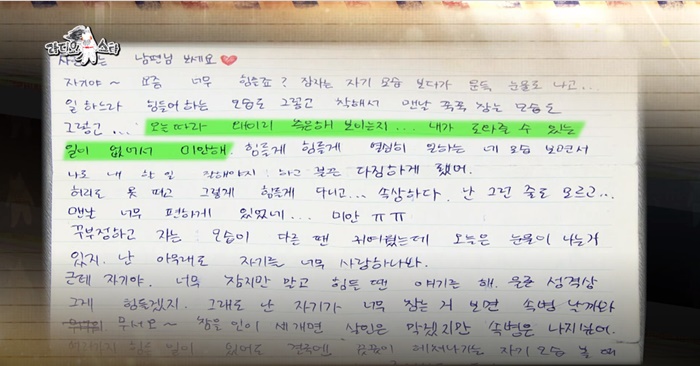 라디오스타
남편님 보세요
자기야~ 요즘 너무 힘들죠? 잠자는 자기 모습 보다가 문득 눈물도 나고...
일 하느라 힘들어 하는 모습도 그렇고 착해서 맨날 꾹꾹 참는 모습도
그렇고... 오늘따라 왜이리 측은해 보이는지... 내가 도와줄 수 있는
일이 없어서 미안해. 힘들게 힘들게 열심히 일하는 네 모습 보면서
나도 내 할 일 잘해야지 하고 불끈 다짐하게 됐어.
허리도 못 펴고 그렇게 힘들게 다니고... 속상하다. 난 그런 줄도 모르고...
맨날 너무 편하게 있었네... 미안 ㅠㅠ
꾸부정하고 자는 모습이 다른 땐 귀여웠는데 오늘은 눈물이 나는거
있지. 난 아무래도 자기를 너무 사랑하나봐.
근데 자기야. 너무 참지만 말고 힘들 땐 얘기좀 해. 물론 성격상
그게 힘들겠지. 그래도 난 자기가 너무 참는 거 보면 속병 날까봐
무서요~ 참을 인이 세개면 살인은 막겠지만 속병은 나지싶어.
힘든 일이 있어도 결국엔 끙끙 자기 모습 볼 때